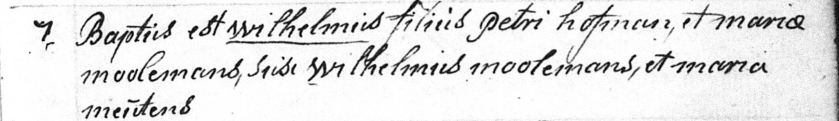 7 Baptūs est Wilhelmūs filiūs petri hofman, et mariæ
moolemans, susc Wilhelmūs moolemans, et maria
meūtens